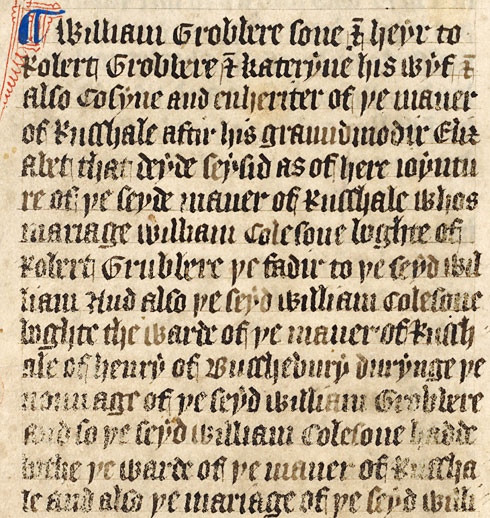 ¶ William Grobbere sone ⁊ heyr to
Robert Grobbere ⁊ Kateryne his wyf ⁊
also Cosyne and enheriter of þe maner
of Russhale aftir his graundmodir Eliz
abet that deyde seysid as of here ioyntu
re of þe seyde maner of Russhale whos
mariage William Colesone boghte of
Robert Grubbere þe fadir to þe seyd Wil
liam And also þe seyd William Colesone
boghte the warde of þe maner of Russh
ale of henry of Busshebury durynge þe
nounage of þe seyd William Grobbere
and so þe seyd William Colesone hadde
bothe þe warde of þe maner of Russha
le and also þe mariage of þe seyd Willi